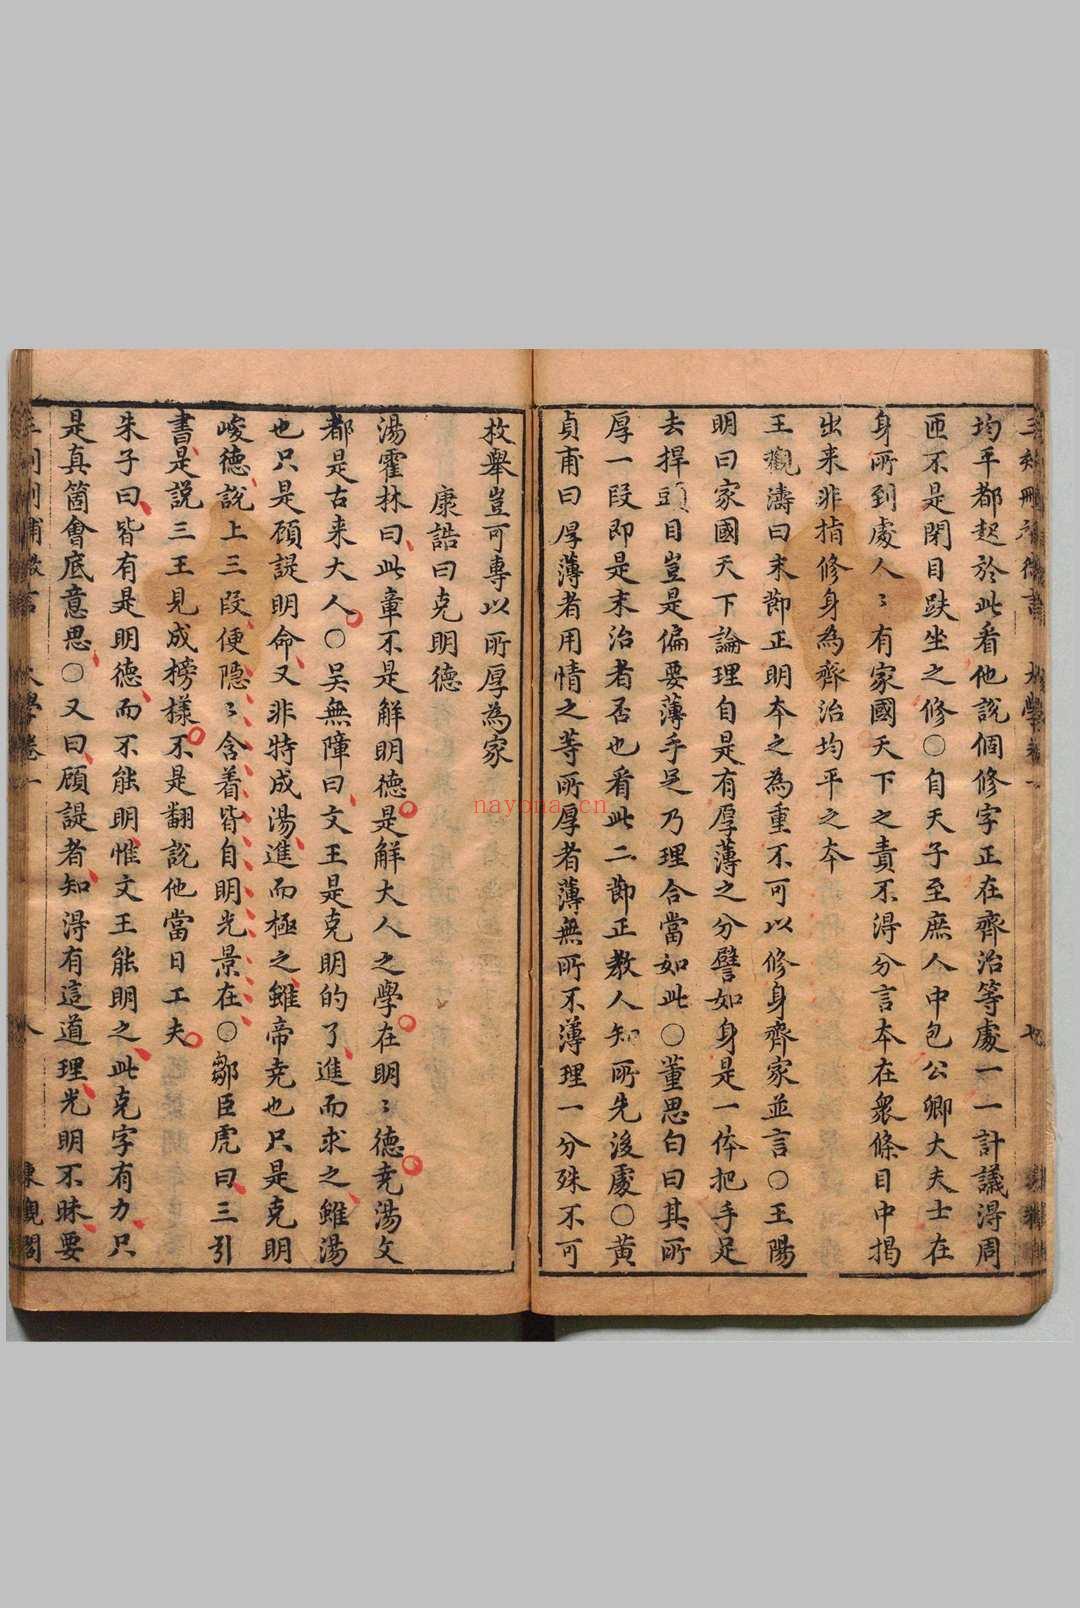 均平都起於此看他說個修字正在齊治等處一一計議得周
匝不是閉目趺坐之修○自天子至庶人中包公卿大夫士在
身所到處人〻有家國天下之責不得分言本在衆條目中揭
出来非指修身為齊治均平之本
王觀濤曰末節正明本之為重不可以修身齊家並言○王陽
明曰家國天下論理自是有厚薄之分譬如身是一体把手足
去捍頭目豈是偏要薄手足乃理合當如此○董思白曰其所
厚一段即是末治者否也看此二節正教人知所先後處○黄
貞甫曰厚薄者用情之等所厚者薄無所不薄理一分殊不可
枚舉豈可專以所厚為家
康誥曰克明德
湯霍林曰此章不是解明德是解大人之學在明〻德堯湯文
都是古来大人○吴無障曰文王是克明的了進而求之雖湯
也只是顧諟明命又非特成湯進而極之雖帝堯也只是克明
峻德說上三段便隠〻含着皆自明光景在○鄒臣虎曰三引
書是說三王見成榜樣不是翻說他當日工夫
朱子曰皆有是明德而不能明惟文王能明之此克字有力只
是真箇會底意思○又曰顧諟者知得有這道理光明不昧要
大學卷一
八
東觀閣
nayona.cn